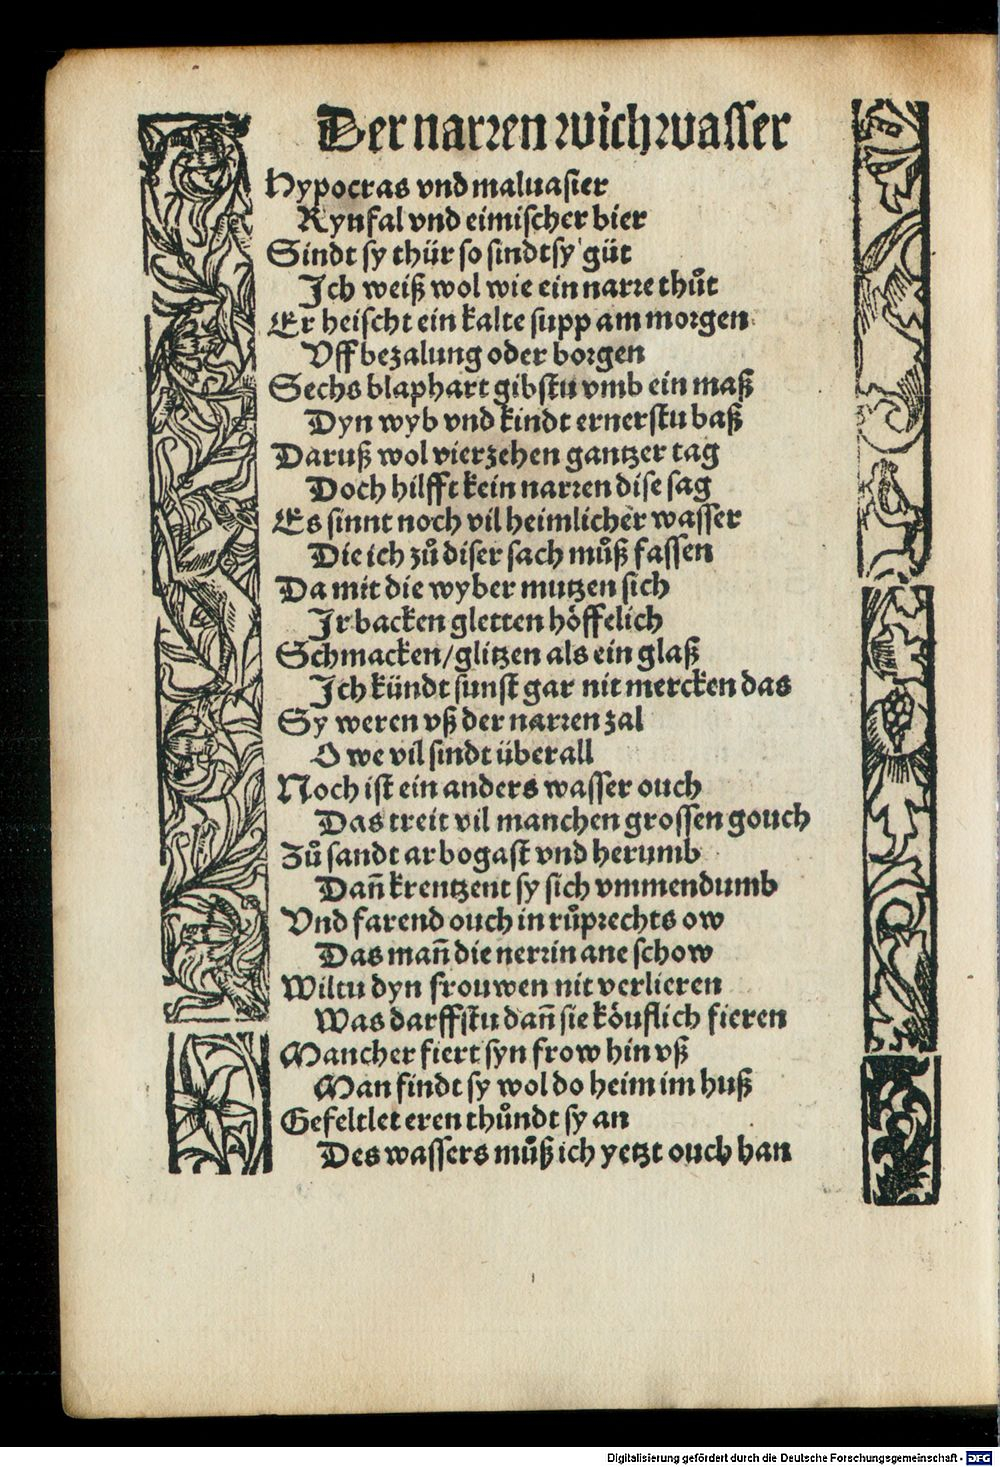 Der narren wichwasser
Hypocras vnd maluasier
Rynfal vnd eimischer bier
Sindt sy thür so sindt sy güt
Ich weiß wol wie ein narre thůt
Er heischt ein kalte supp am morgen
Vff bezalung oder borgen
Sechs blaphart gibstu vmb ein maß
Dyn wyb vnd kindt ernerstu baß
Daruß wol vierzehen gantzer tag
Doch hilfft kein narren dise sag
Es sinnt noch vil heimlicher wasser
Die ich zů diser sach můß fassen
Da mit die wyber mutzen sich
Ir backen gletten höffelich
Schmacken/glitzen als ein glaß
Ich kündt sunst gar nit mercken das
Sy weren vß der narren zal
O we vil sindt überall
Noch ist ein anders wasser ouch
Das treit vil manchen grossen gouch
Zů sandt arbogast vnd herumb
Dañ krentzent sy sich vmmendumb
Vnd farend ouch in růprechts ow
Das mañ die nerrin ane schow
Wiltu dyn frouwen nit verlieren
Was darffstu dañ sie köuflich fieren
Mancher fiert syn frow hin vß
Man findt sy wol do heim im huß
Gefeltlet eren thůndt sy an
Des wassers můß ich yetzt ouch han
Digitalisierung gefördert durch die Deutsche Forschungsgemeinschaft - DFG